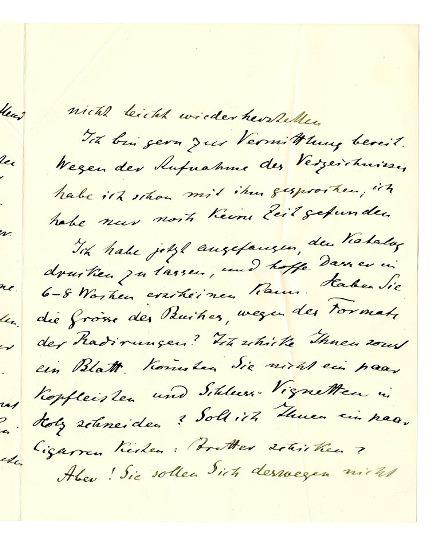 nicht leicht wiederherstellen
Ich bin gern zur Vermittlung bereit.
Wegen der Aufnahme des Verzeichnisses
habe ich schon mit ihm gesprochen, ich
habe nur noch keine Zeit gefunden
Ich habe jetzt angefangen, den Katalog
drucken zu lassen, und hoffe dass er in
6-8 Wochen erscheinen kann. Haben Sie
die Grösse des Buches, wegen des Formats
der Radirungen? Ich schicke Ihnen sonst
ein Blatt. Könnten Sie nicht ein paar
Kopfleisten und Schluss-Vignetten in
Holz schneiden? Soll ich Ihnen ein paar
Cigarren Kisten: Bretter schicken?
Aber! Sie sollen Sich deswegen nicht